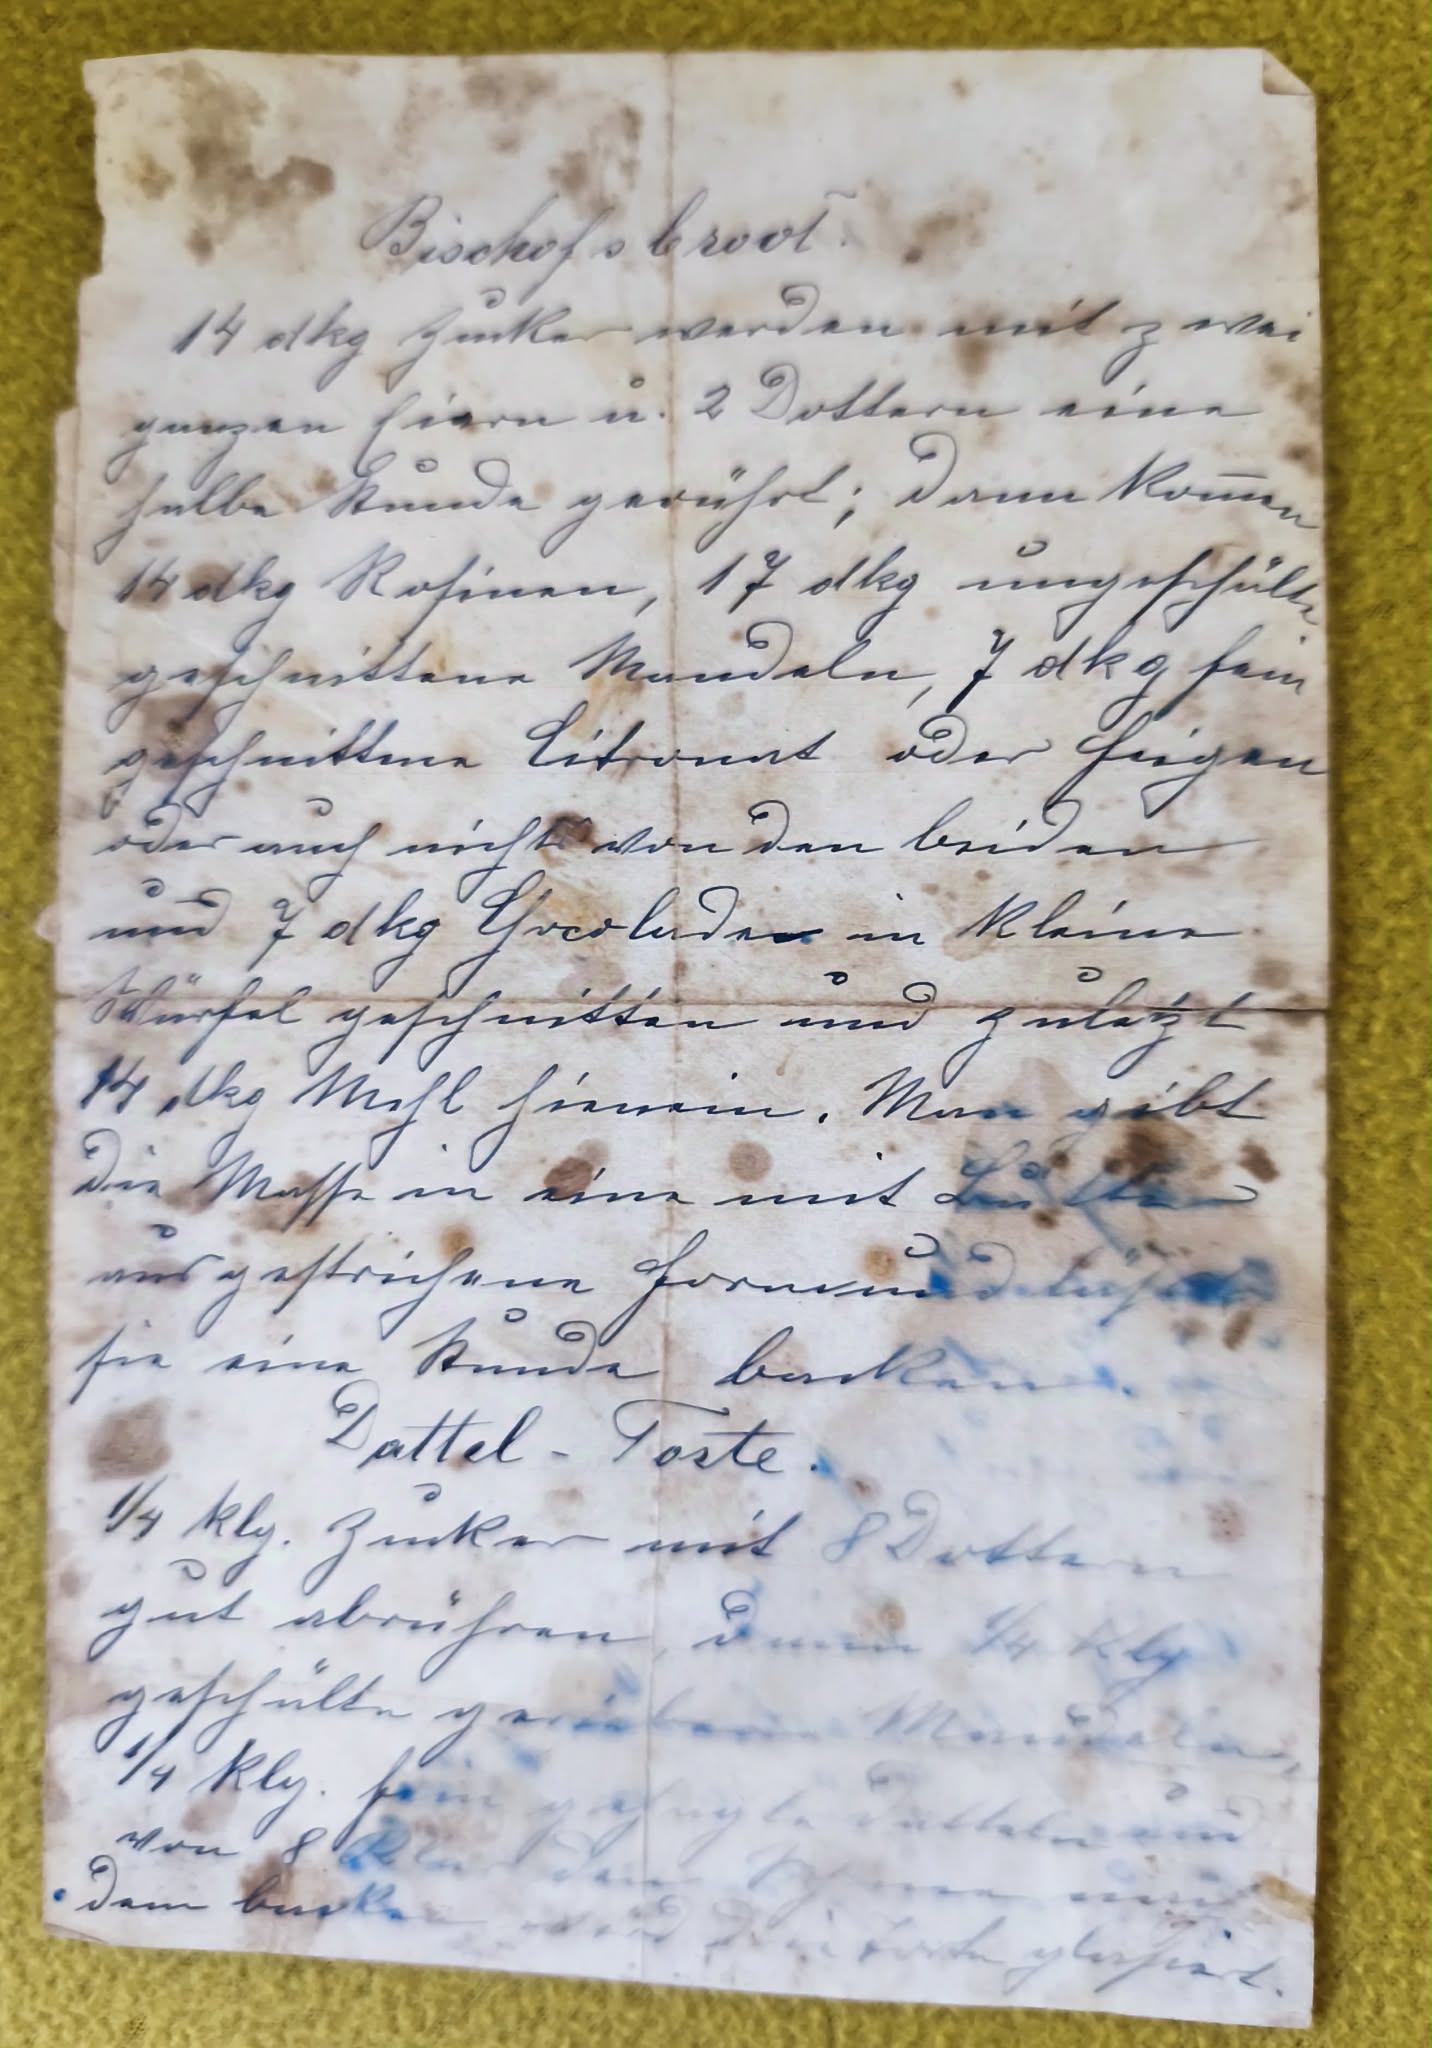 Bischofsbroot.
14 dkg Zucker werden mit zwei
ganzen Eiern u. 2 Dottern eine
halbe Stunde gerührt; dann kom̄en
14 dkg Rosinen, 17 dkg ungeschälte
geschnittene Mandeln, 7 dkg fein
geschnittene Citronat oder Feigen
oder auch nichts von den beiden
und 7 dkg Chocolade in kleine
Würfel geschnitten und zuletzt
14 dkg Mehl hienein. Man gibt
die Masse in eine mit
ausgestrichene Form und
sie eine Stunde backen.
Dattel-Torte.
1/4 klg. Zucker mit 8 Dottern
gut abrühren, dann 1/4 klg
geschälte geriebene Mandeln,
1/4 klg. fein Datteln und
von 8 Klar den
dem backen wird die Torte glasiert.